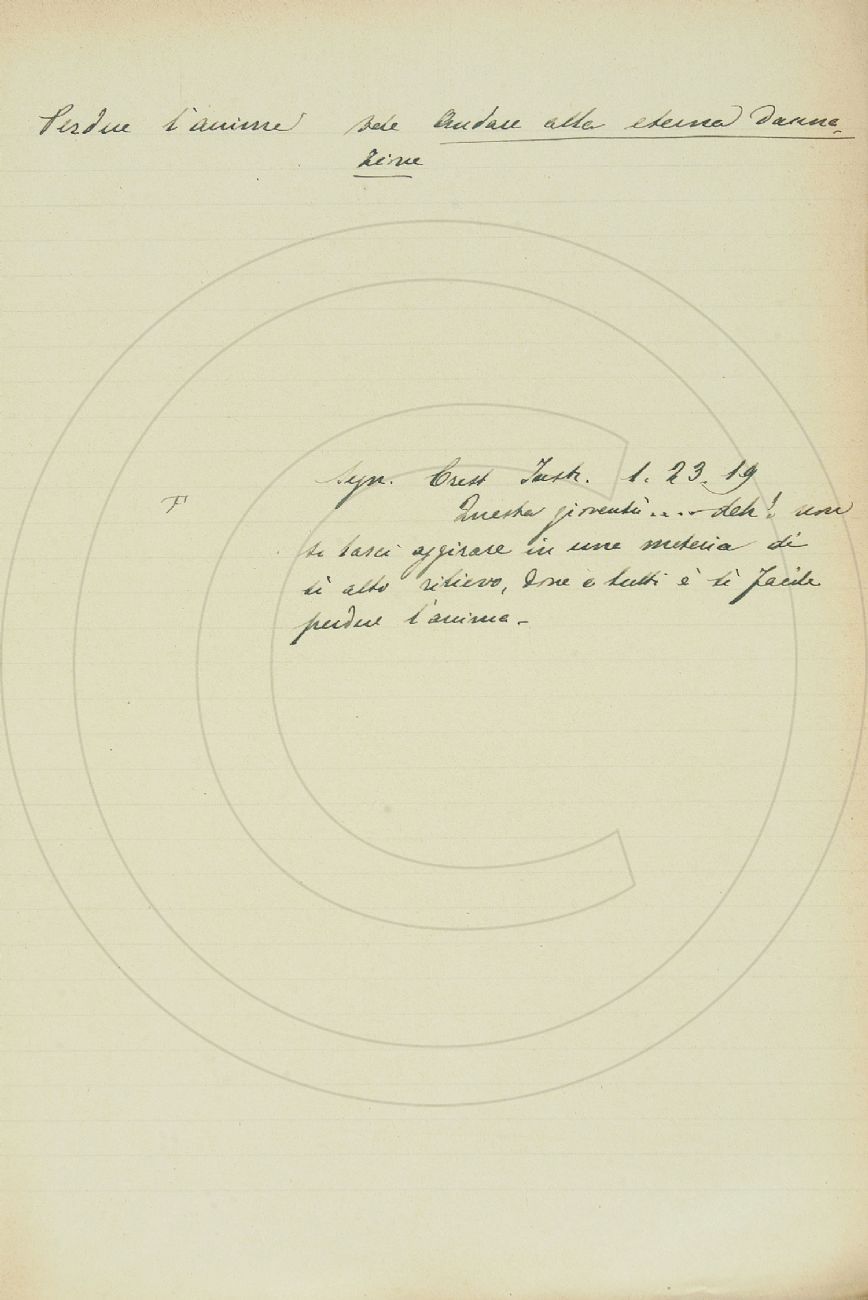 Perdere l'anima vede Andare alla eterna danna-
zione
F
Segn. Crist Instr. 1. 23. 19
Questa gioventù .... deh! non
ti lasci aggirare in una materia di
sì alto rilievo, dove a tutti è sì facile
perdere l'anima.-